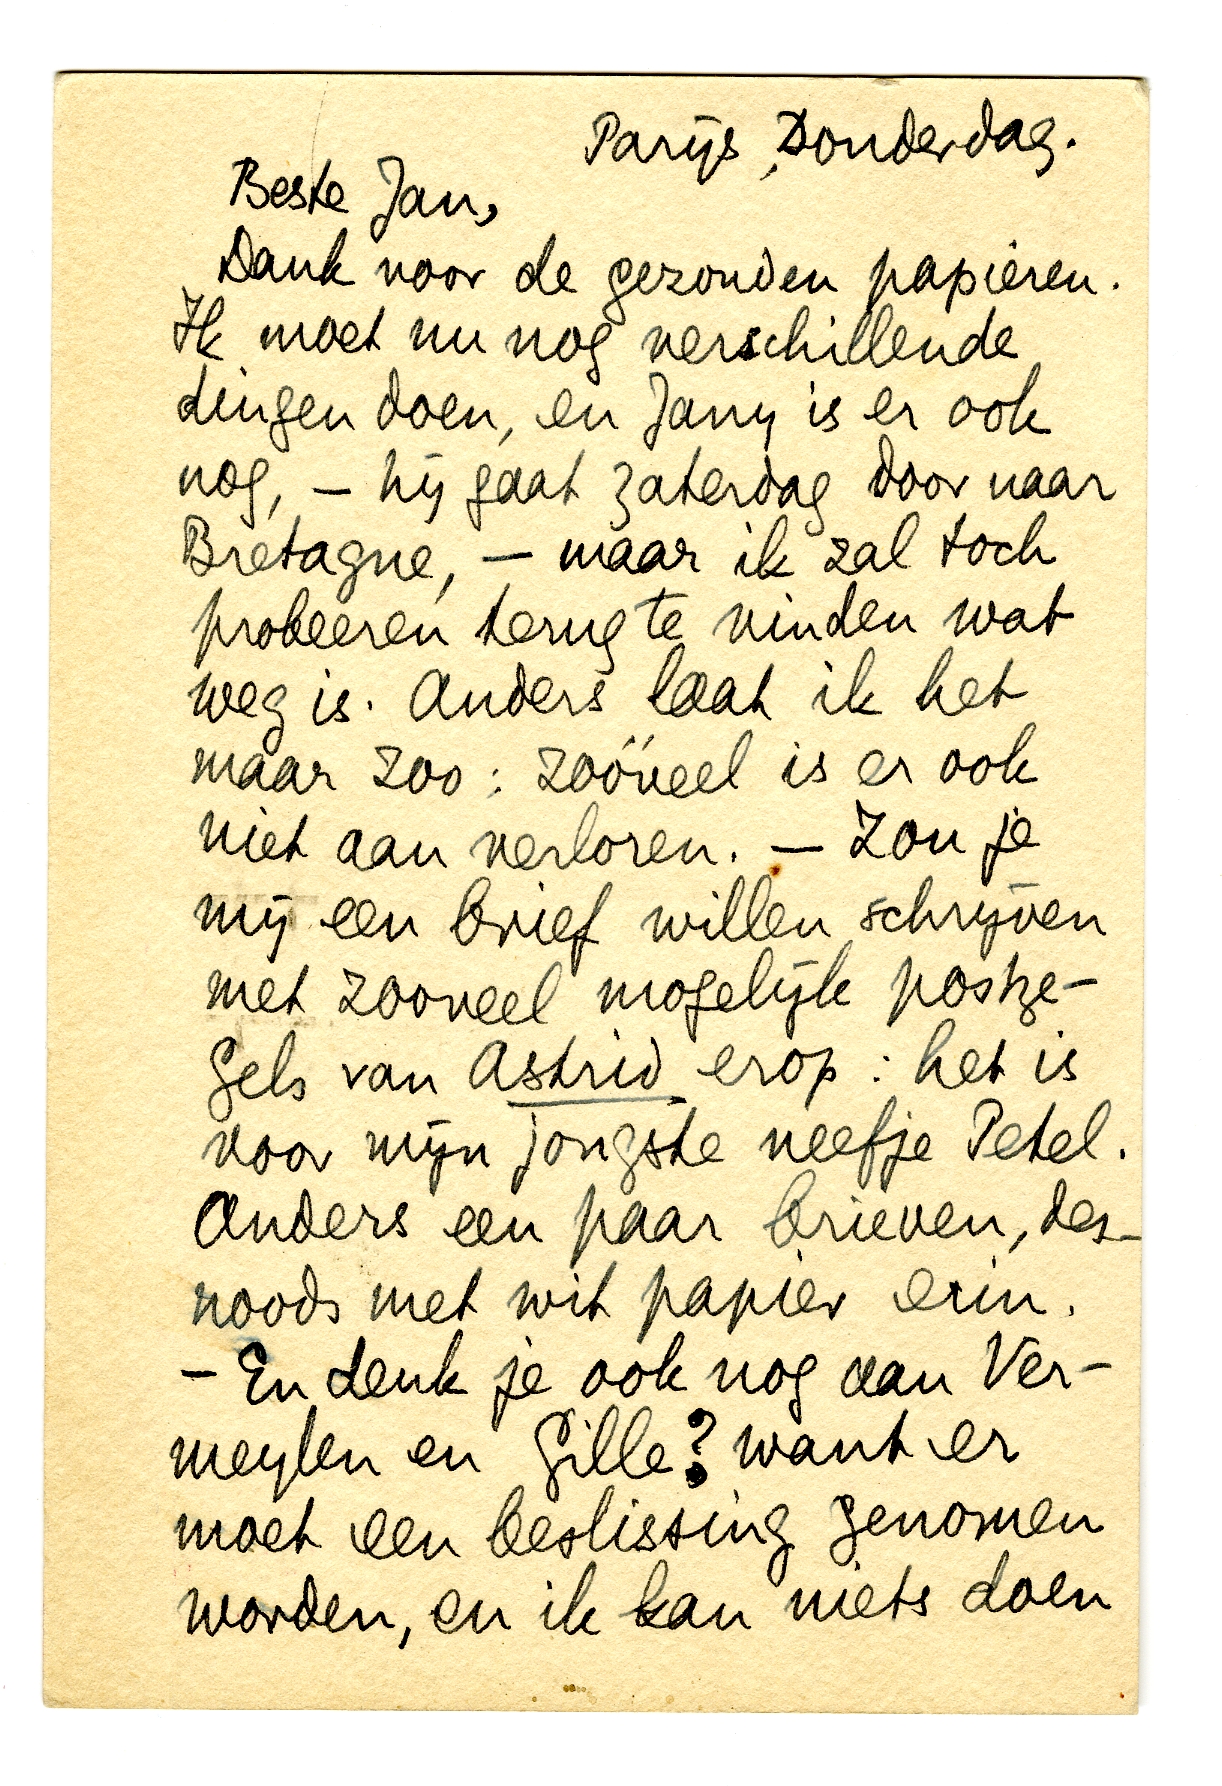 Parijs, Donderdag.
Beste Jan,
Dank voor de gezonden papieren.
Ik moet nu nog verschillende
dingen doen, en Jany is er ook
nog, — hij gaat Zaterdag door naar
Bretagne, — maar ik zal toch
probeeren terug te vinden wat
weg is. Anders laat ik het
maar zoo: zoóveel is er ook
niet aan verloren. — Zou je
mij een brief willen schrijven
met zooveel mogelijk postze-
gels van Astrid erop: het is
voor mijn jongste neefje Petel.
Anders een paar brieven, des-
noods met wit papier erin.
— En denk je ook nog aan Ver-
meylen en Gille? want er
moet een beslissing genomen
worden, en ik kan niets doen